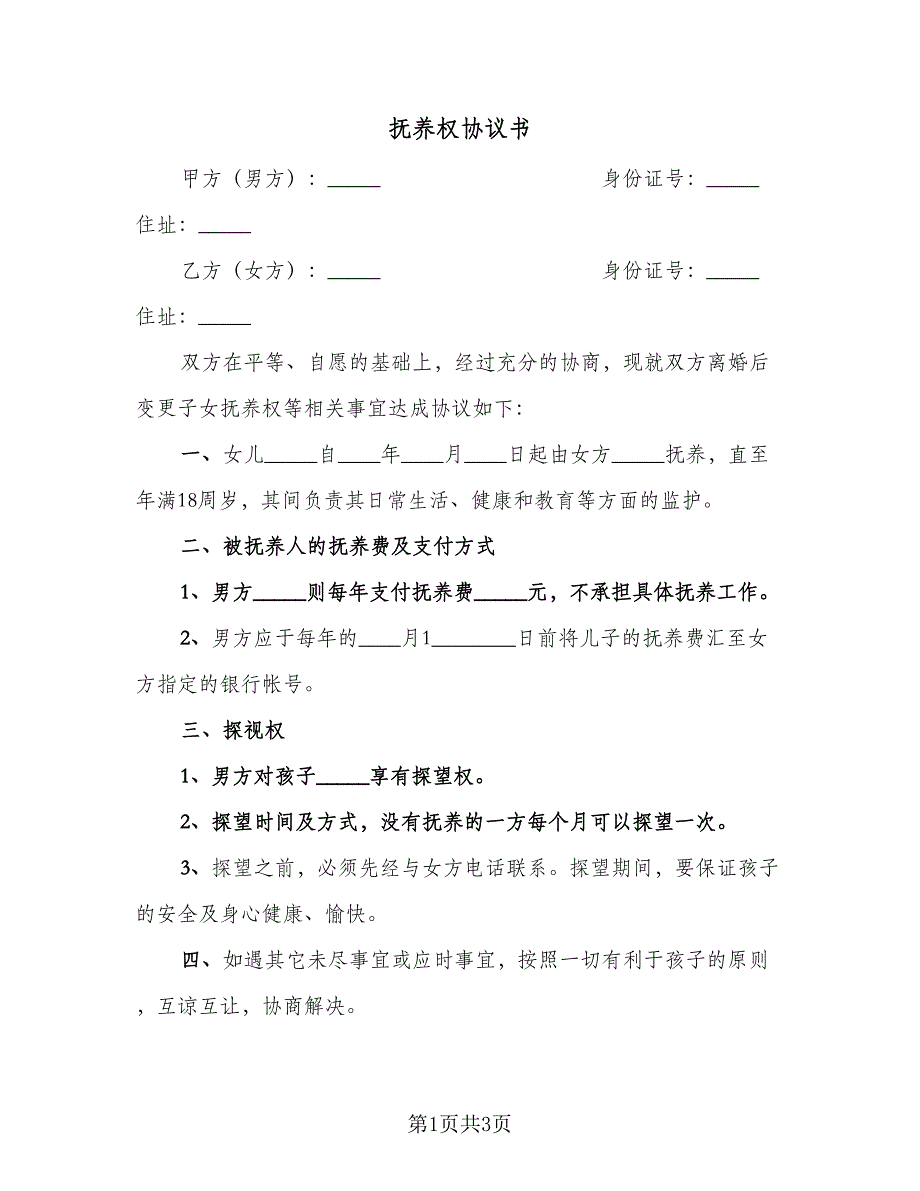 抚养权协议书
甲方（男方）：_____ 身份证号：_____
住址：_____
乙方（女方）：_____ 身份证号：_____
住址：_____
双方在平等、自愿的基础上，经过充分的协商，现就双方离婚后
变更子女抚养权等相关事宜达成协议如下：
一、女儿_____自____年____月____日起由女方_____抚养，直至
年满18周岁，其间负责其日常生活、健康和教育等方面的监护。
二、被抚养人的抚养费及支付方式
1、男方_____则每年支付抚养费_____元，不承担具体抚养工作。
2、男方应于每年的____月1________日前将儿子的抚养费汇至女
方指定的银行帐号。
三、探视权
1、男方对孩子_____享有探望权。
2、探望时间及方式，没有抚养的一方每个月可以探望一次。
3、探望之前，必须先经与女方电话联系。探望期间，要保证孩子
的安全及身心健康、愉快。
四、如遇其它未尽事宜或应时事宜，按照一切有利于孩子的原则
，互谅互让，协商解决。
第1页共3页